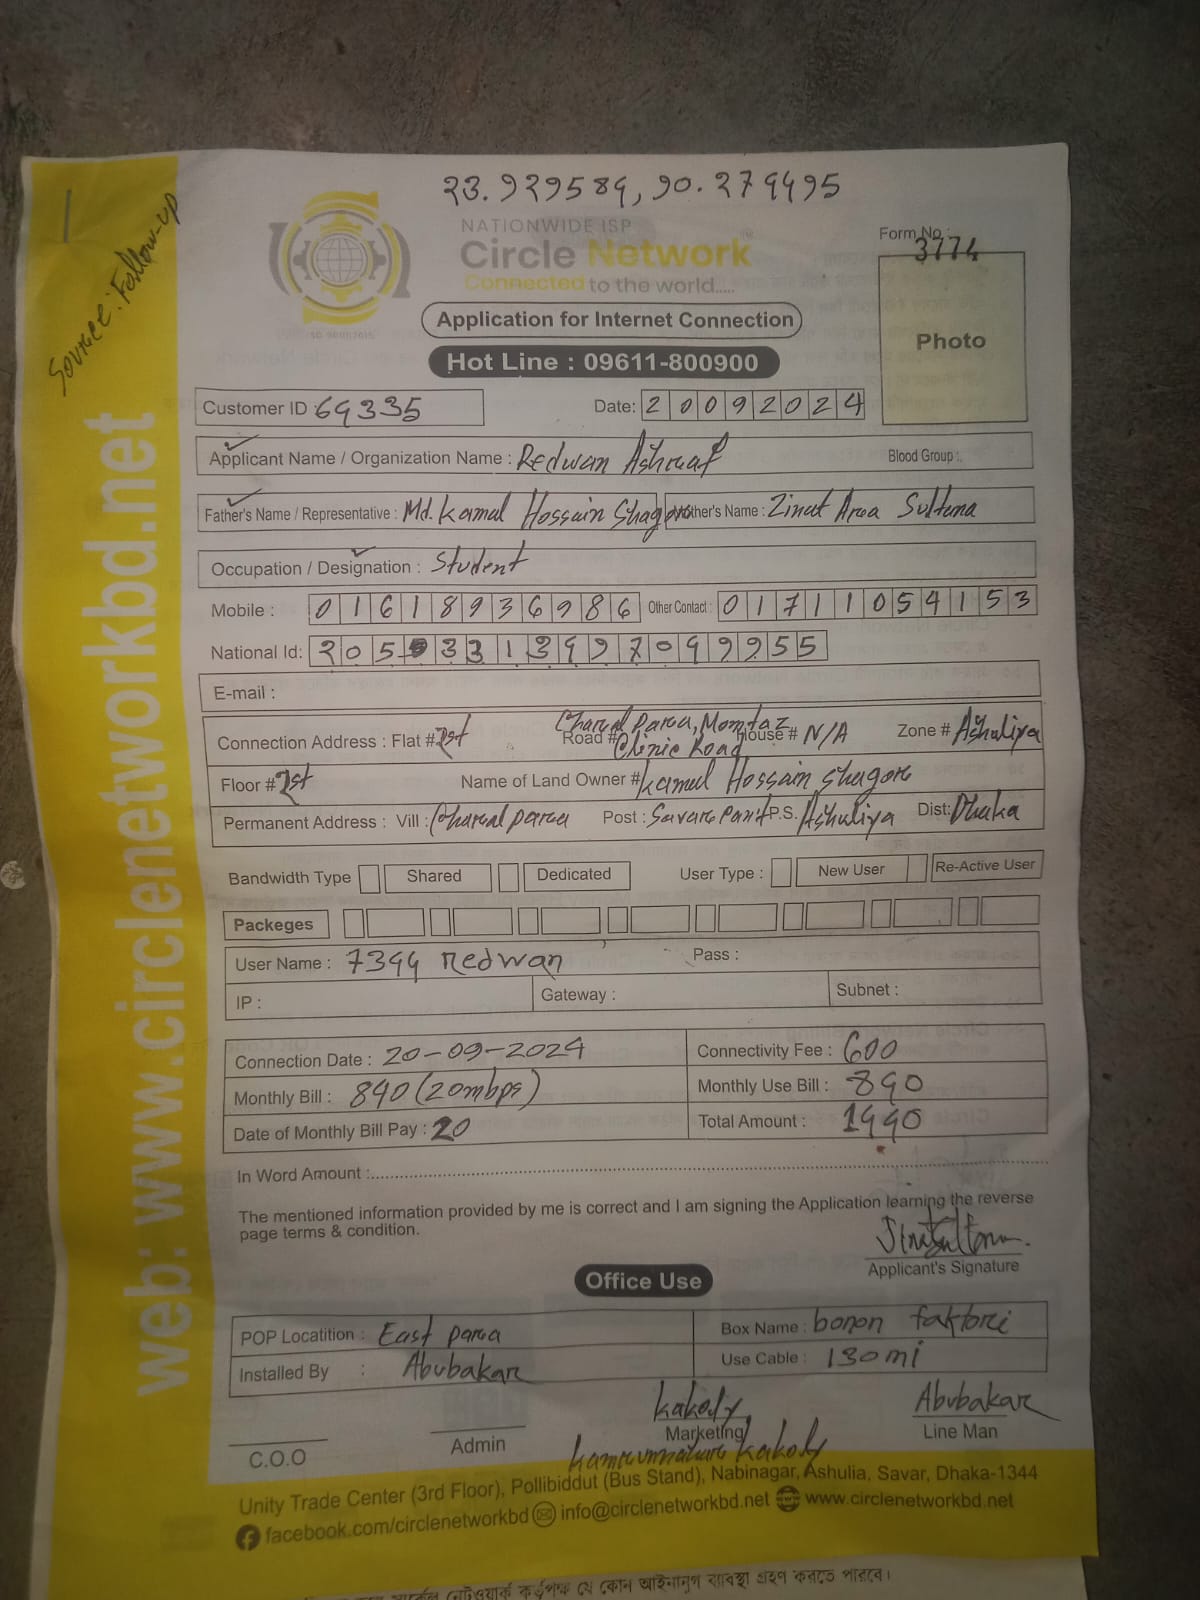 23.929584, 90.279495
Source: Follow-up
NATIONWIDE ISP
Circle Network
Connected to the world.....
Form No.: 3774
Photo
Application for Internet Connection
Hot Line : 09611-800900
Customer ID : 69335 Date: 20092024
Applicant Name / Organization Name : Redwan Ashraf Blood Group:
Father's Name / Representative : Md. Kamal Hossain Shagor Mother's Name : Zinat Ara Sultana
Occupation / Designation : Student
Mobile : 01618936986 Other Contact : 01711054153
National Id:
E-mail :
Connection Address : Flat # 1st Road # Charal Para, Momtaz Clinic Road House # N/A Zone # Ashuliya
Floor # 1st Name of Land Owner # Kamal Hossain Shagor
Permanent Address : Vill : Charal para Post : Savar Cant P.S. Ashuliya Dist: Dhaka
Bandwidth Type Shared Dedicated User Type : New User Re-Active User
Packeges
User Name : 7394 Redwan Pass :
IP : Gateway : Subnet :
Connection Date : 20-09-2024 Connectivity Fee : 600
Monthly Bill : 840 (20mbps) Monthly Use Bill : 840
Date of Monthly Bill Pay : 20 Total Amount : 1440
In Word Amount :
The mentioned information provided by me is correct and I am signing the Application learning the reverse
page terms & condition.
Applicant's Signature
Office Use
POP Locatition : East para Box Name : bonon faktori
Installed By : Abubakar Use Cable : 130mi
Kakoly Abubakar
C.O.O Admin Marketing Line Man
Kakoly
Unity Trade Center (3rd Floor), Pollibiddut (Bus Stand), Nabinagar, Ashulia, Savar, Dhaka-1344
facebook.com/circlenetworkbd info@circlenetworkbd.net www.circlenetworkbd.net
web: www.circlenetworkbd.net
কর্তৃপক্ষ যে কোন আইনানুগ ব্যবস্থা গ্রহণ করতে পারবে।